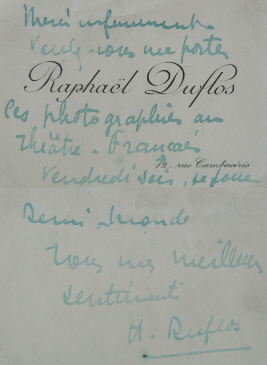 Merci infiniment.
Veuillez-vous me porter
Raphaël Duflos
ces photographies au
Théâtre-Français
12, rue Cambacérès
Vendredi soir, je joue
Demi-Monde
Tous mes meilleurs
sentiments
Duflos